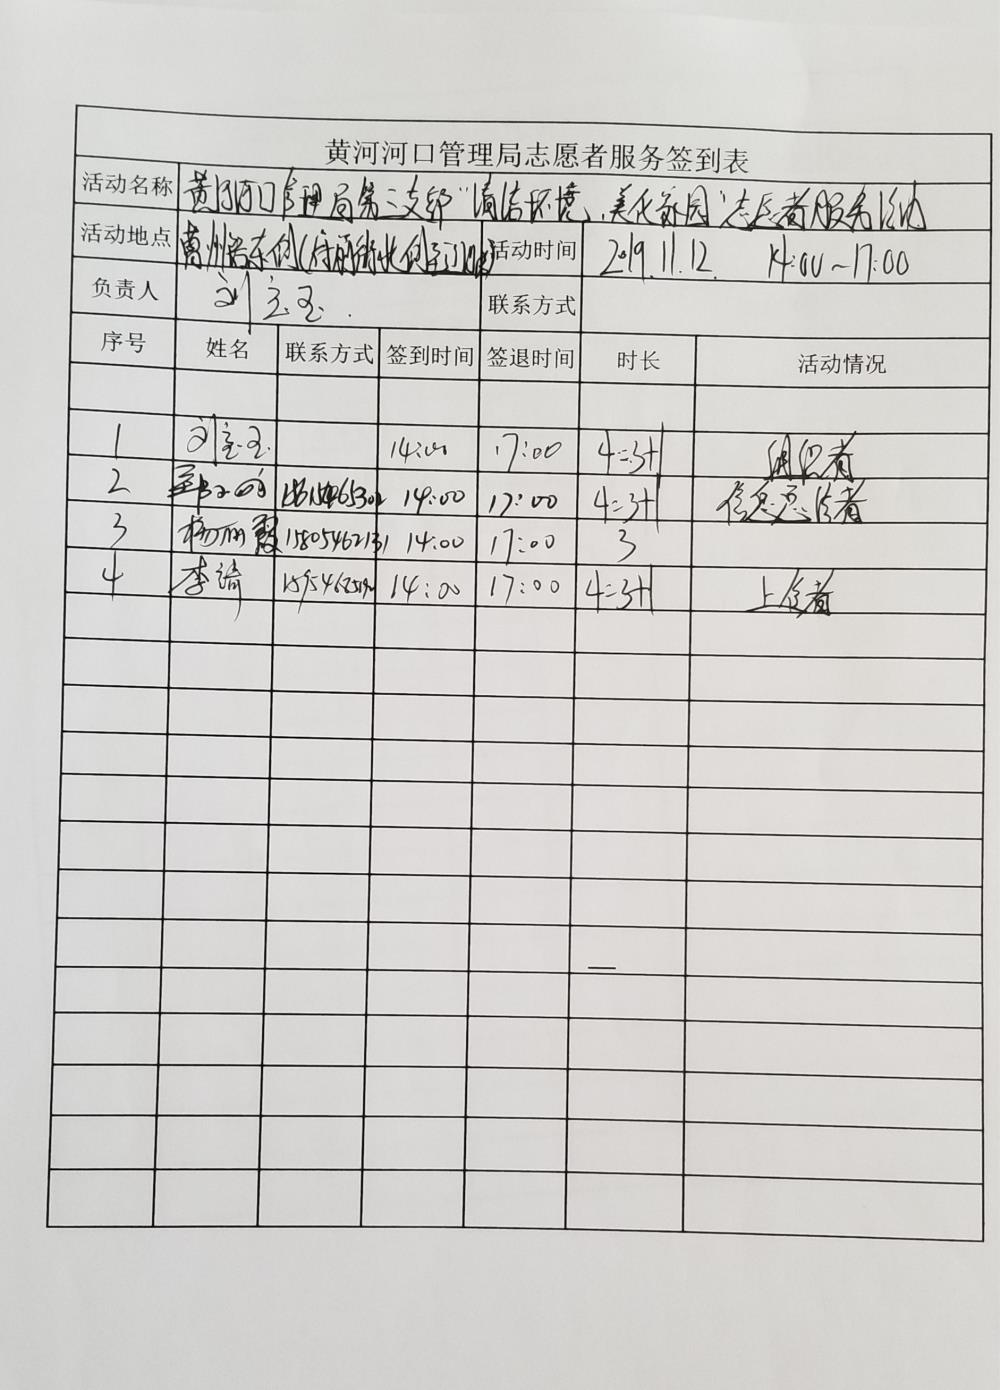 黄河河口管理局志愿者服务签到表
活动名称 黄河河口管理局第三支部"清洁环境、美化家园"志愿者服务活动
活动地点 莒州路东侧(府前街北侧至门 活动时间 2019.11.12. 14:00~17:00
负责人 刘宝玉. 联系方式
序号 姓名 联系方式 签到时间 签退时间 时长 活动情况
1 刘宝玉 14:00 17:00 4=3+1 组织者
2 14:00 17:00 4=3+1 信息 者
3 杨丽霞 15805462131 14:00 17:00 3
4 李琦 14:00 17:00 4=3+1 上传者